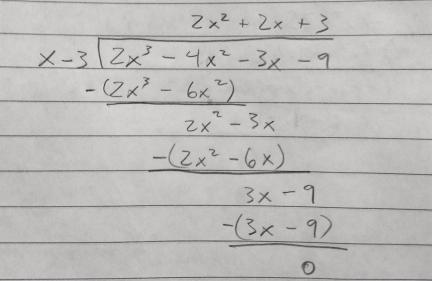 2x² + 2x + 3
x - 3 | 2x³ - 4x² - 3x - 9
-(2x³ - 6x²)
2x² - 3x
-(2x² - 6x)
3x - 9
-(3x - 9)
0